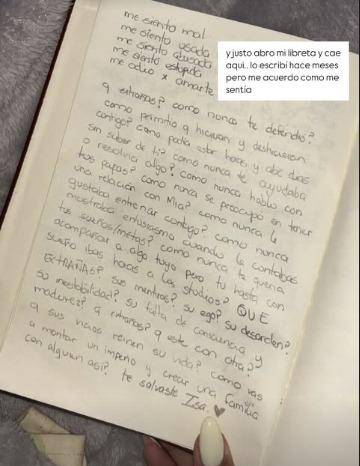 me siento mal
me siento usada
me siento abusada
me siento estupida
me odio x amarte
y justo abro mi libreta y cae
aqui.. lo escribí hace meses
pero me acuerdo como me
sentía
q extrañas? como nunca te defendió?
como permitio q hicieran y deshicieran
contigo? como podía estar horas y abc dias
sin saber de ti? como nunca te ayudaba
a resolver algo? como nunca hablo con
tus papas? como nunca se preocupó en tener
una relación con Mia? como nunca le
gustaba entrenar contigo? como nunca
mostraba entusiasmo cuando le contabas
tus sueños/metas? como nunca te quería
acompañar a algo tuyo pero tu hasta con
sueño ibas hacas a las studios? QUE
EXTRAÑAS? sus mentiras? su ego? su desorden?
su inestabilidad? su falta de conciencia y
madurez? q extrañas? q este con otra?
q sus vicios reinen su vida? como vas
a montar un imperio y crear una familia
con alguien asi? te salvaste Isa.